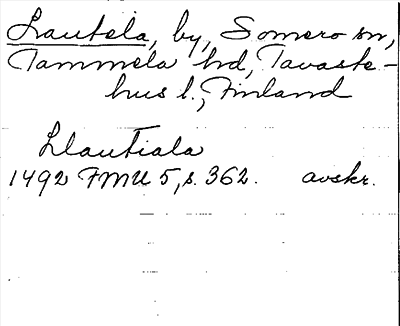 Lautela, by, Somero sn,
Tammela hd, Tavaste-
hus l., Finland
Llautiala
1492 FMU 5, s. 362. avskr.